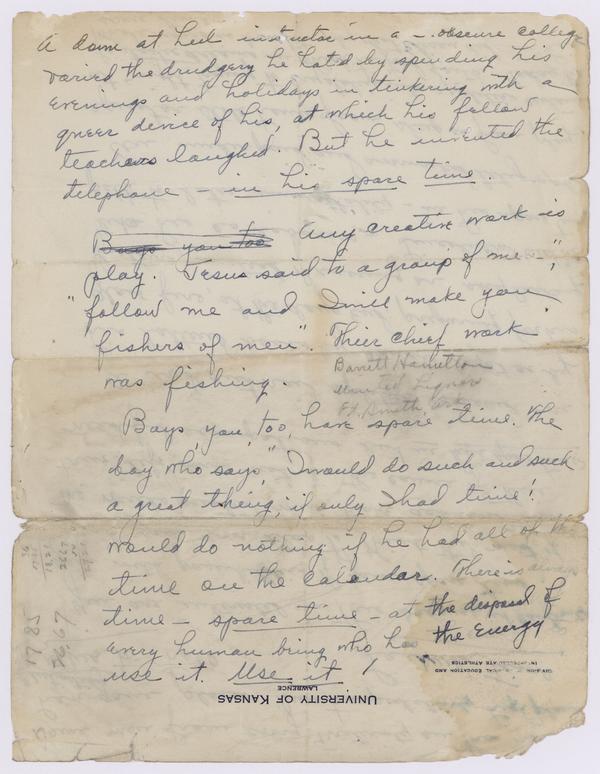 A down at heel instructor in a - obscure college
varied the drudgery he hated by spending his
evenings and holidays in tinkering with a
queer device of his, at which his fellow
teachers laughed. But he invented the
telephone - in his spare time.
Boys you too Any creative work is
play. Jesus said to a group of me -,"
"follow me and I will make you
fishers of men". Their chief work
was fishing.
Barrett Hamilton
United
Ft. Smith Ark
Boys, you, too, have spare time. The
boy who says," I would do such and such
a great thing, if only I had time!
would do nothing if he had all of the
time on the calendar. There is
time - spare time - at the disposal of
every human being who has the Energy
use it. Use it!
1785
2667
UNIVERSITY OF KANSAS
LAWRENCE
DIVISION PHYSICAL EDUCATION AND
INTERCOLLEGIATE ATHLETICS